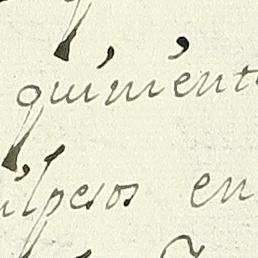 quinient
ilpesos en